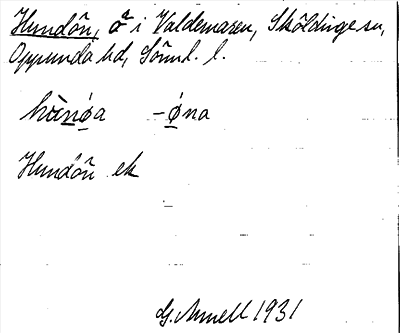 Hundön, ö i Valdemaren, Sköldinge sn,
Oppunda hd, Sörml. l.
hùnø̱a -ø̱na
Hundön ek
G. Arnell 1931